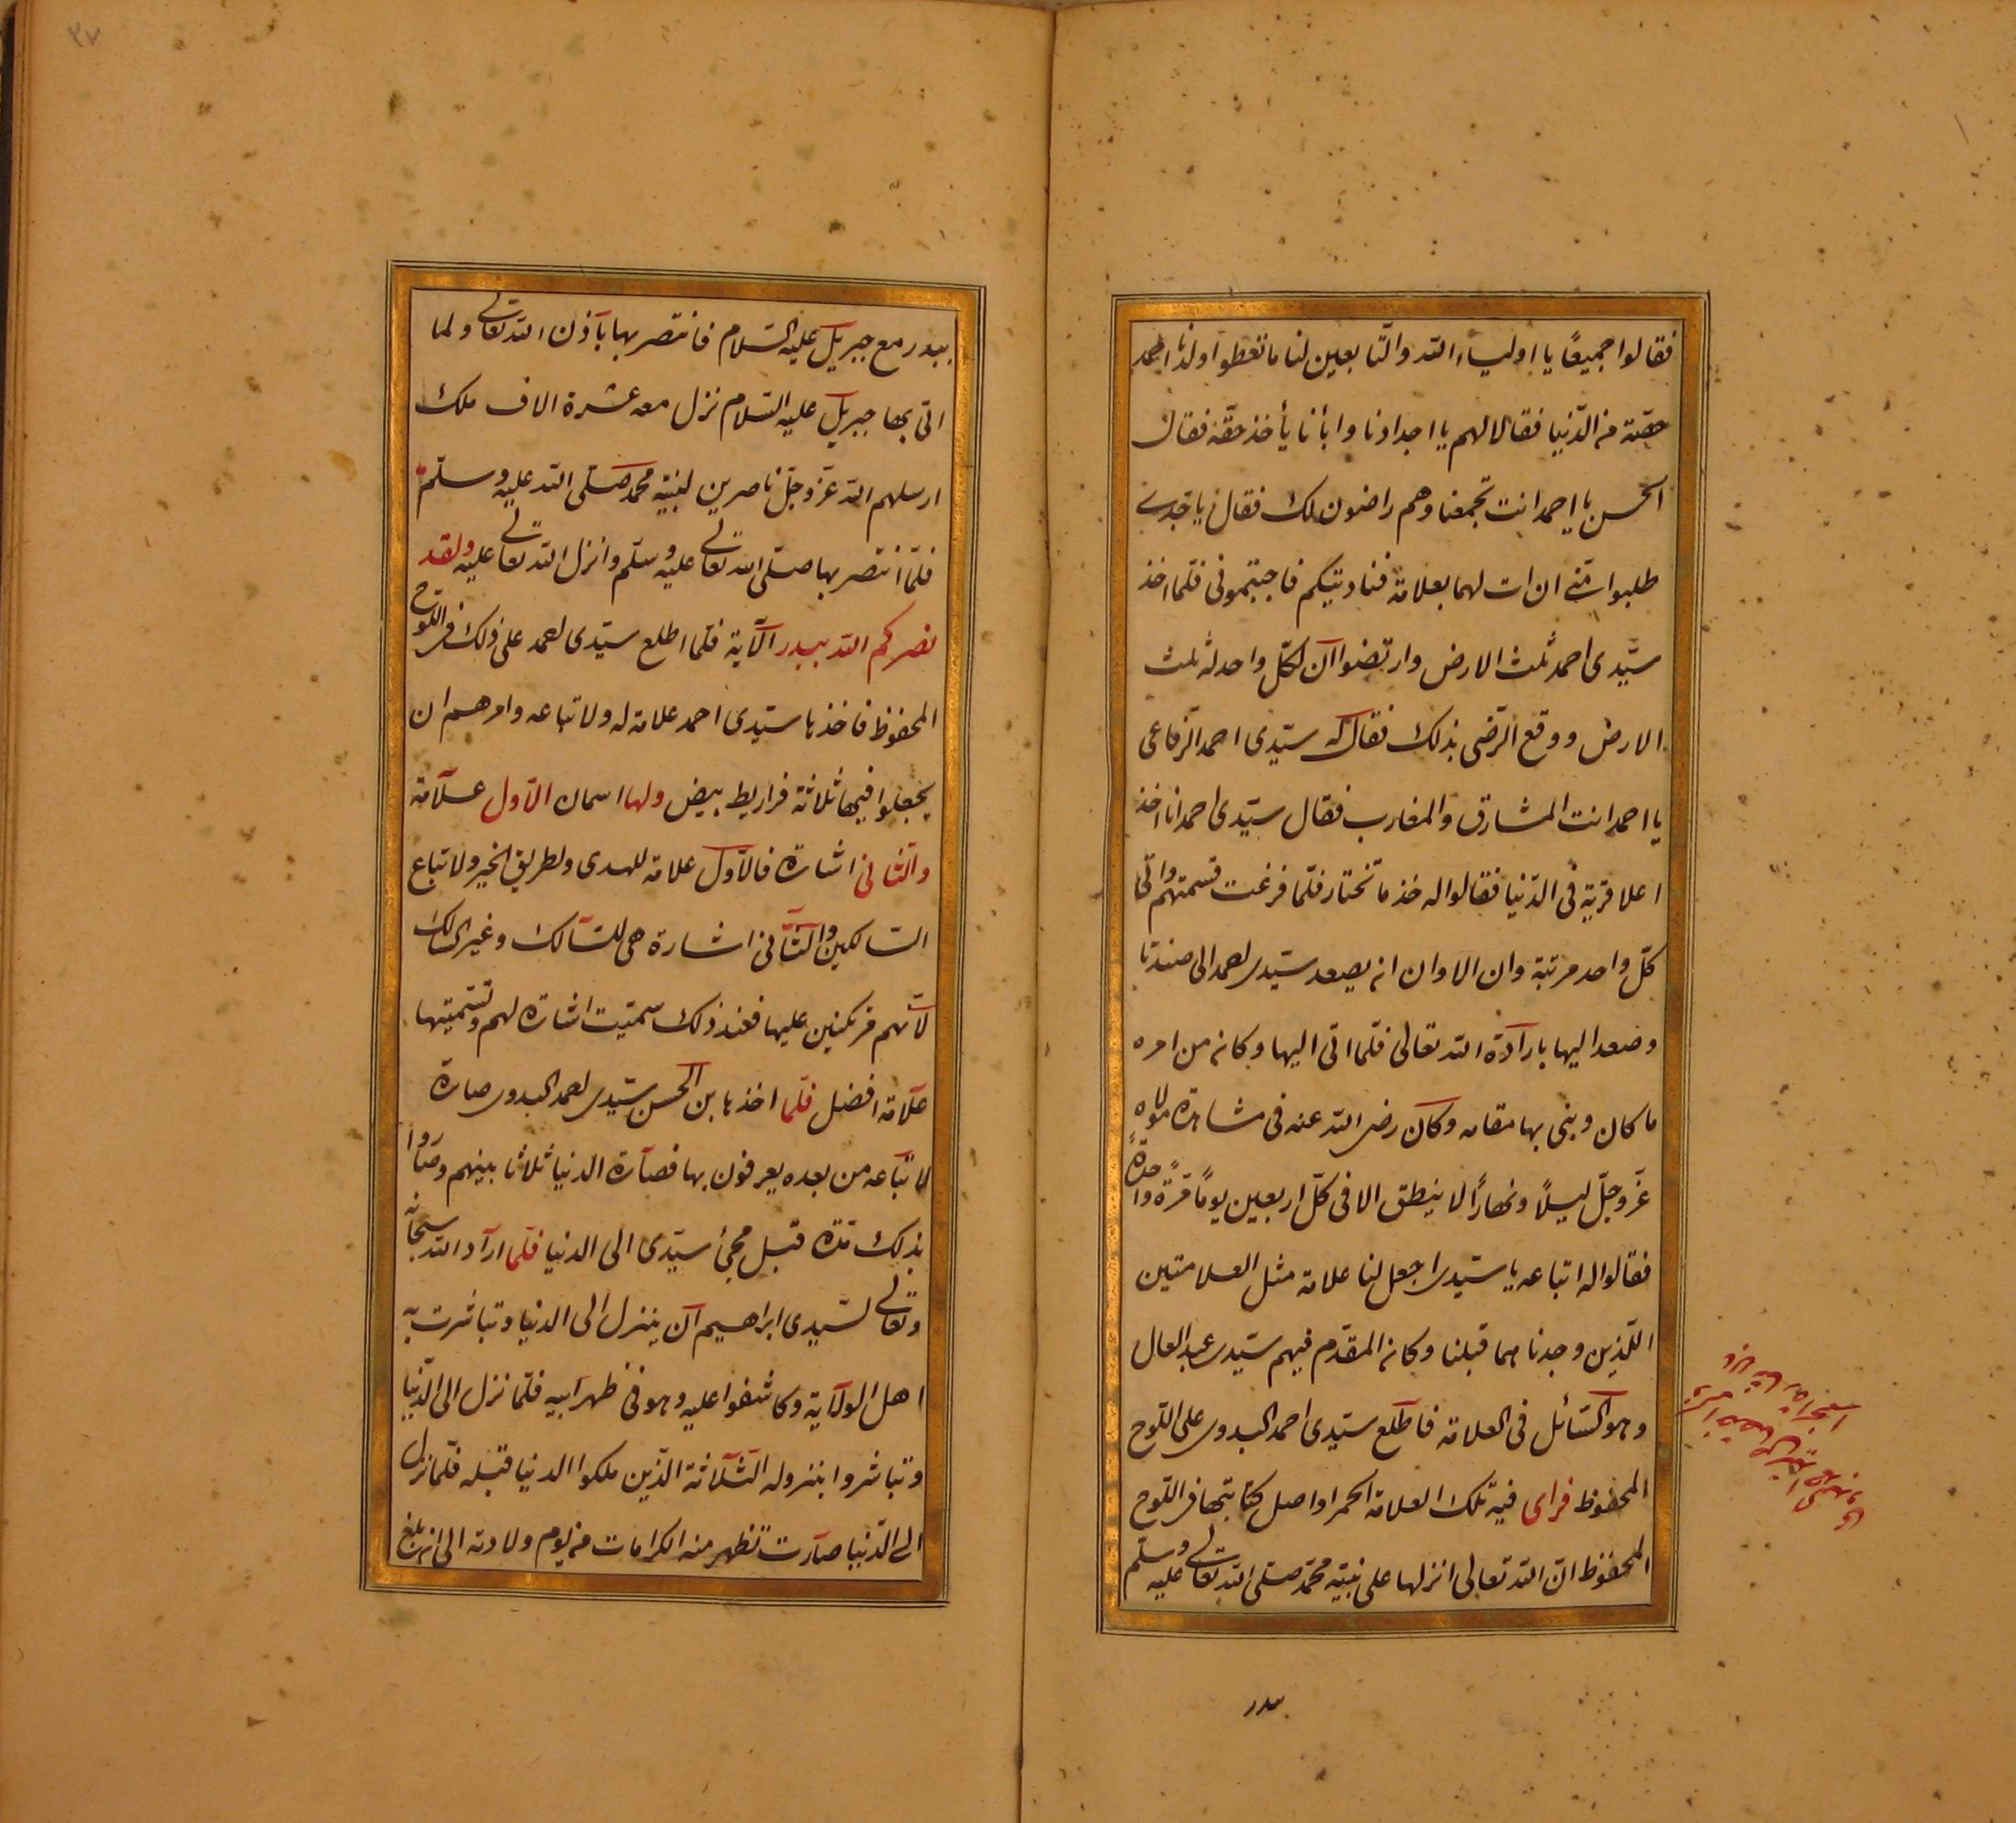 فقالوا جميعًا يا اولياء الله والتّابعين لنا ما تعطوا ولدنا احمد
حصّته من الدّنيا فقالا لهم يا اجدادنا وابأنا يأخذ حقّه فقال
الحسن يا احمد انت تجمعنا وهم راضون لك فقال يا جدى
طلبوا منّى ان ات لهما بعلامة فناديتكم فاجبتمونى فلما اخذ
سيّدى احمد ثلث الارض وارتضوا ان لكلّ واحد له ثلث
الارض ووقع الرّضى بذلك فقال له سيّدى احمد الرّفاعى
يا احمد انت المشارق والمغارب فقال سيّدى احمد انا اخذ
اعلا قرية فى الدّنيا فقالوا له خذ ما تختار فلمّا فرغت قسمتهم واتى
كلّ واحد مرتبة وان الاوان انه يصعد سيّدى احمد الى صندتا
وصعد اليها بارآدة الله تعالى فلمّا اتى اليها وكان من امره
ما كان وبنى بها مقامه وكان رضى الله عنه فى مشاهدة مولاه
عزّ وجلّ ليلًا ونهارًا لا ينطق الا فى كلّ اربعين يومًا مرّة واحدةً
فقالوا له اتباعه يا سيّدى اجعل لنا علامة مثل العلامتين
اللّذين وجدناهما قبلنا وكان المقدّم فيهم سيّدى عبد العال
وهو السّائل فى العلامة فاطّلع سيّدى احمد البدوى على اللّوح
المحفوظ فراى فيه تلك العلامة الحمرا واصل كتابتها فى اللّوح
المحفوظ انّ الله تعالى انزلها على نبيّه محمّد صلّى الله تعالى عليه وسلّم
بدر
٣٧
ببدر مع جبريل عليه السّلام فانتصر بها بآذن الله تعالى ولما
اتى بها جبريل عليه السّلام نزل معه عشرة الاف ملك
ارسلهم الله عزّ وجلّ ناصرين لنبيّه محمد صلّى الله عليه وسلّم
فلمّا انتصر بها صلّى الله تعالى عليه وسلّم وانزل الله تعالى عليه ولقد
نصركم الله ببدر الآية فلمّا اطلع سيّدى احمد على ذلك فى اللّوح
المحفوظ فاخذها سيّدى احمد علامة له ولاتباعه وامرهم ان
يجعلوا فيها ثلاثة فراريط بيض ولها اسمان الاوّل علآمة
والثّانى اشارة فالاوّل علامة للهدى ولطريق الخير ولاتباع
السّالكين والثّانى اشارة هى للسّالك وغير السّالك
لأنّهم مركبين عليها فعند ذلك سمّيت اشارة لهم وتسميتها
علآمة افضل فلمّا اخذها بن الحسن سيّدى احمد البدوى صارة
لاتبّاعه من بعده يعرفون بها فصآرة الدنيا ثلاثا بينهم وصاروا
بذلك مدّة قبل مجئ سيّدى الى الدنيا فلمّا ارآد الله سبحانه
وتعالى لسّيدى ابراهيم ان ينزل الى الدنيا وتباشرت به
اهل الولآية وكاشفوا عليه وهو فى ظهر ابيه فلمّا نزل الى الدّنيا
وتباشروا بنزوله الثّلاثة الذّين ملكوا الدنيا قبله فلمّا نزل
الى الدّنيا صآرت تظهر منه الكرامات من يوم ولادته الى انه بلغ